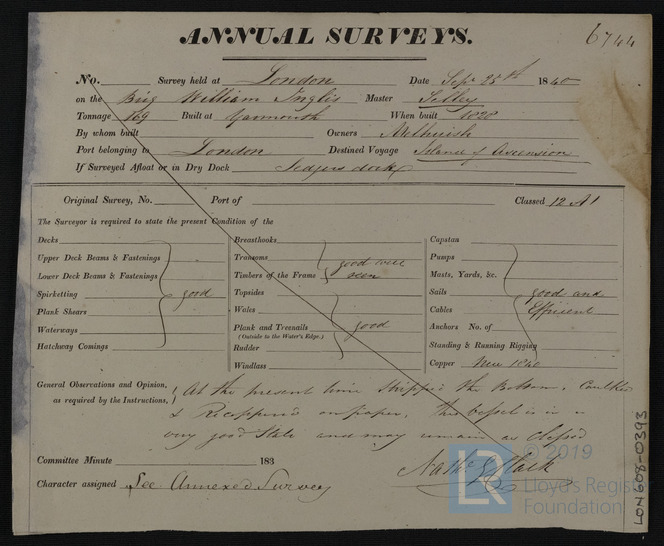 ANNUAL SURVEYS.
6744
No. Survey held at London Date Sepr 25th 1840
on the Brig William Inglis Master Silley
Tonnage 169 Built at Yarmouth When built 1828
By whom built Owners Melhuish
Port belonging to London Destined Voyage Island of Ascension
If Surveyed Afloat or in Dry Dock dock
Original Survey, No. Port of Classed 12 A1
The Surveyor is required to state the present Condition of the
Decks
Upper Deck Beams & Fastenings
Lower Deck Beams & Fastenings
Spirketting good
Plank Shears
Waterways
Hatchway Comings
Breasthooks
Transoms good well
Timbers of the Frame seen
Topsides
Wales
Plank and Treenails good
(Outside to the Water's Edge.)
Rudder
Windlass
Capstan
Pumps
Masts, Yards, &c.
Sails good and
Cables Efficient
Anchors No. of
Standing & Running Rigging
Copper New 1840
General Observations and Opinion, At the present time stripped the Bottom, Caulked
as required by the Instructions, & Recoppered on paper, this vessel is in a
very good State and may remain as Classed
Committee Minute 183
Nathl. Clark
Character assigned See Annexed Survey
© 2019
LR
Lloyd's Register
Foundation
LON608-0393